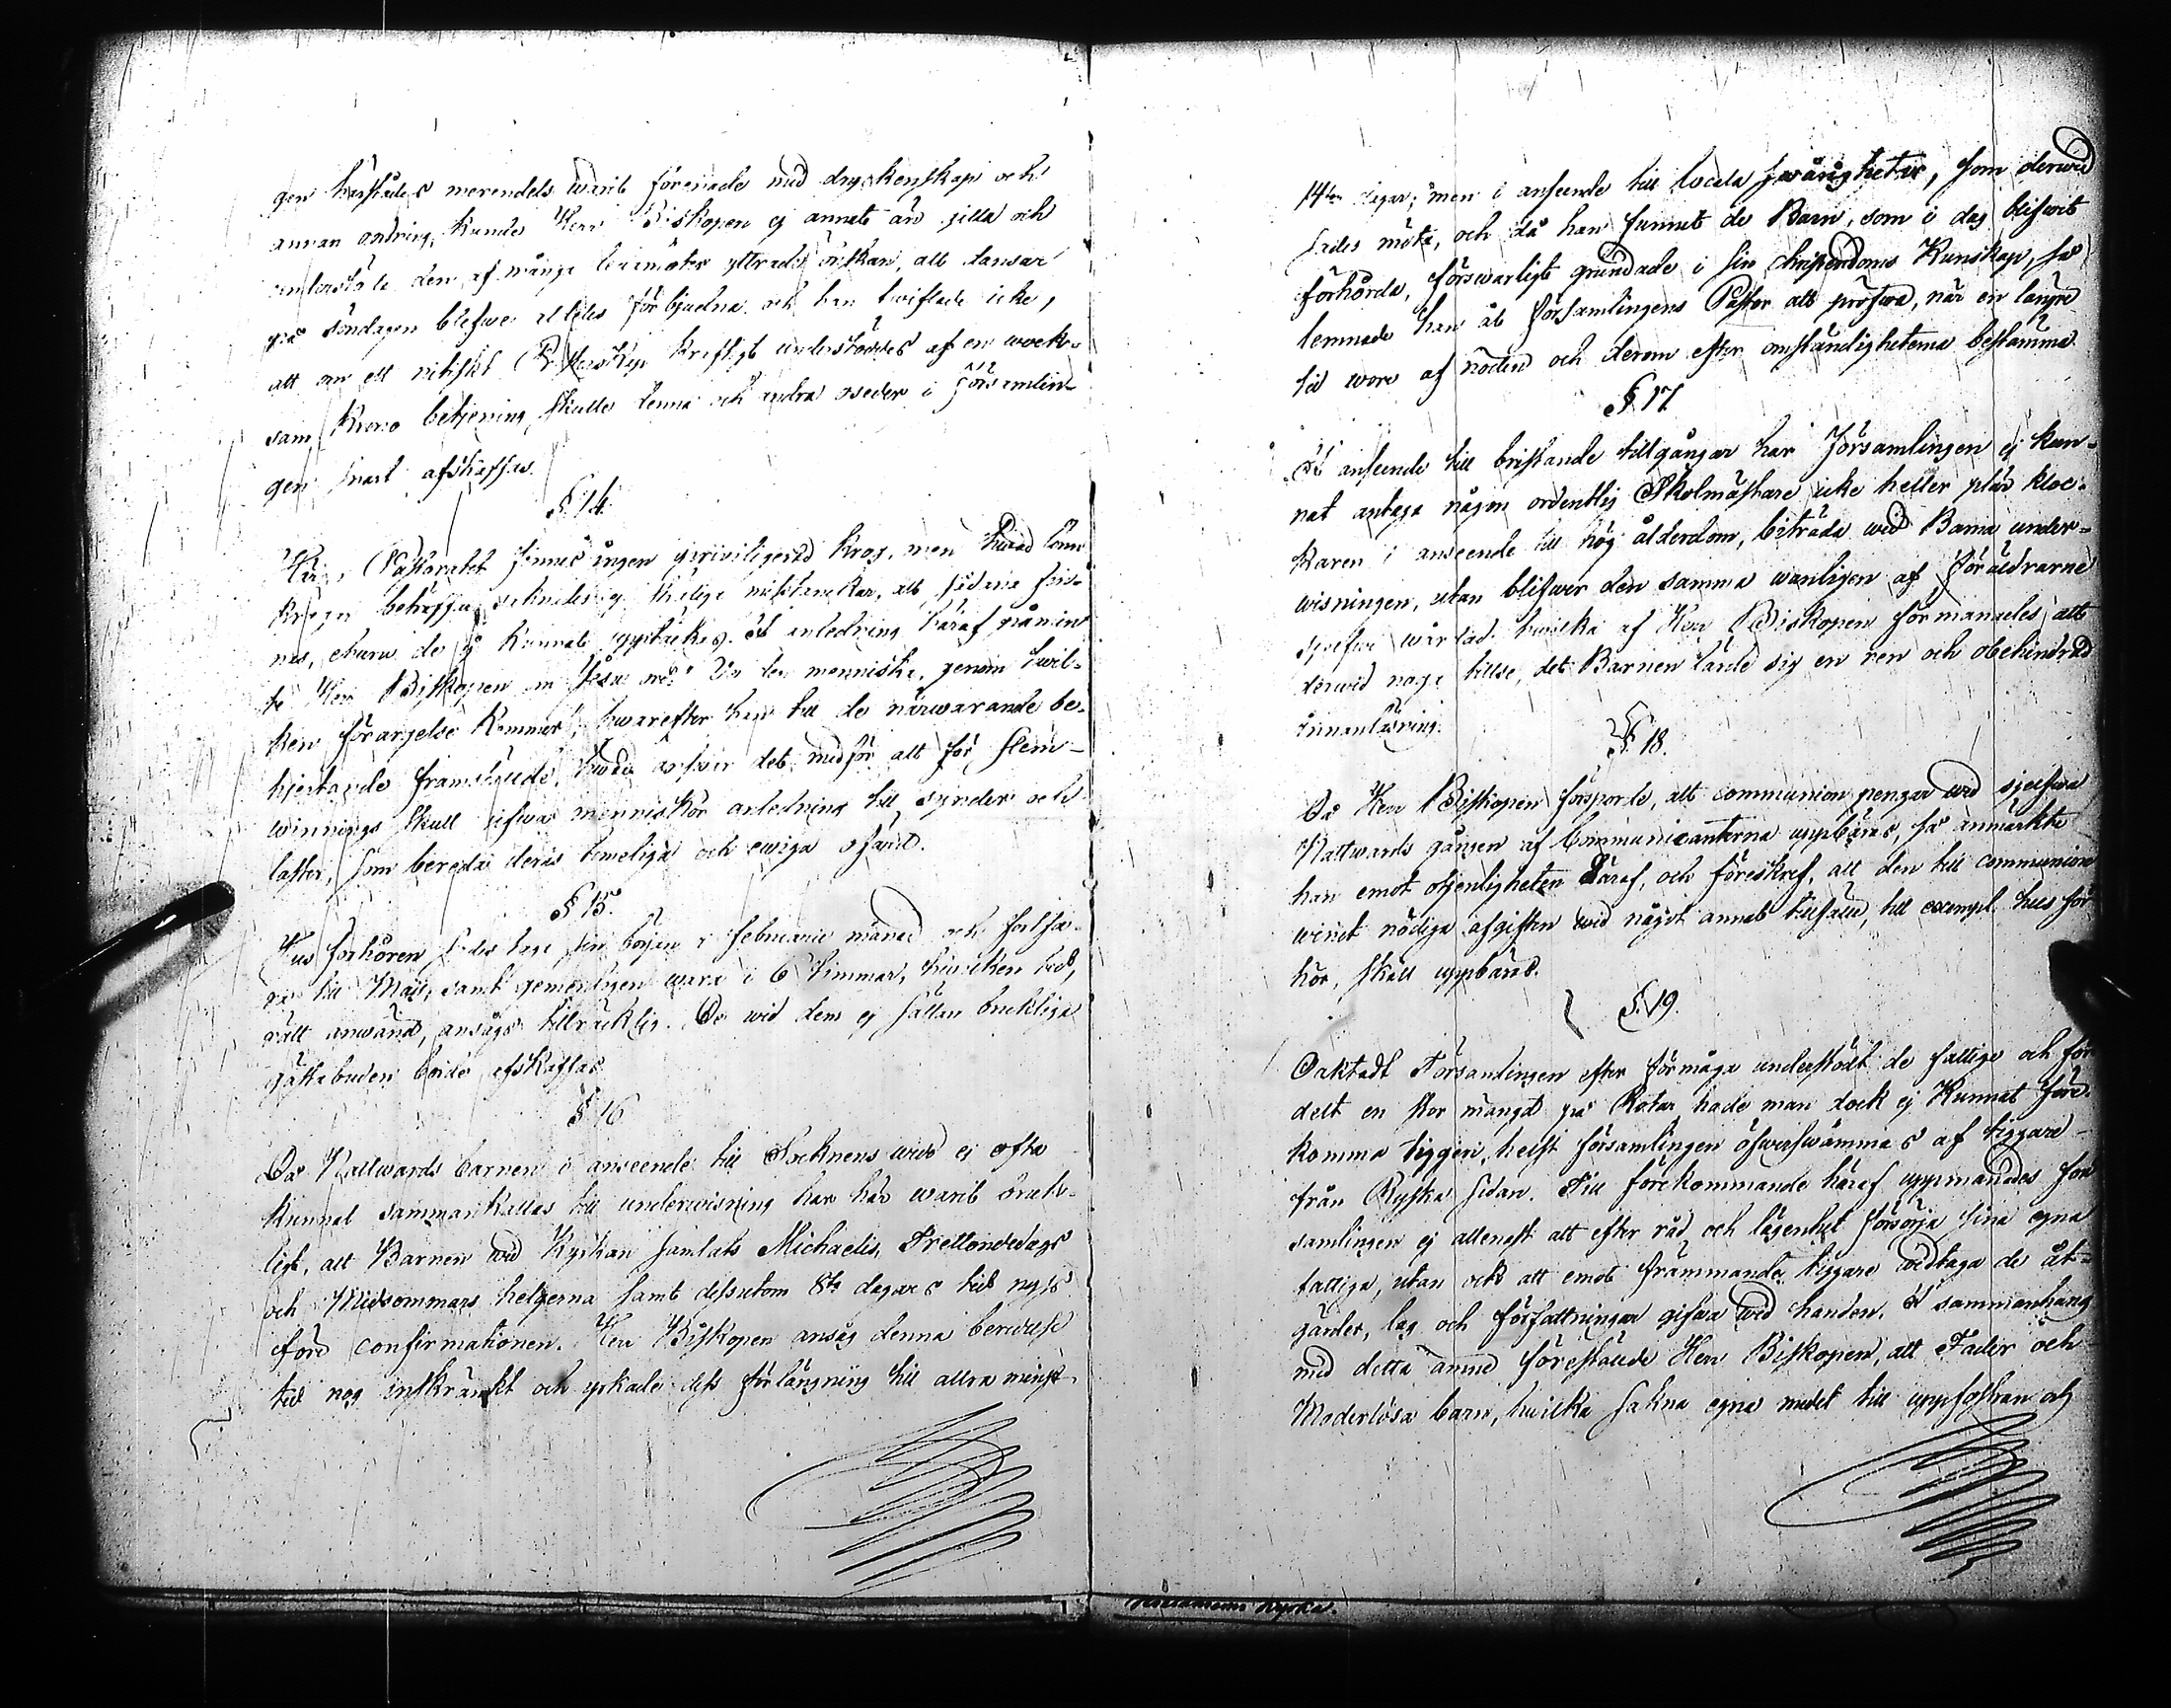 gen härstädes merendels warit förenade med dryckenskap och
annan oordning, kunde Herr Biskopen ej annat än gilla och
understöda den af många ledamöter yttrade önskan, att dansar
på söndagen blefwe alldeles förbjudna och han twiflade icke,
att om ett nitiskt Presterskap kraftigt understöddes af en wack-
sam Krono betjening, skulle denna och andra oseder i Församlin-
gen snart afskaffas.
§ 14.
Här i Pastoratet finnes ingen privilegierad krog, men hwad lönn
krogar beträffar saknades ej skälige misstankar, att sådana fin-
nas, ehuru de ej kunnat upptäckas. I anledning häraf påmin
te Herr Biskopen om Jesu ord: Ve den menniska, genom hwil-
ken förargelse kommer, hwarefter han till de närwarande be-
hjertande framstälde, hwad answar det medför att för slem
winnings skull gifwa menniskor anledning till synder och
laster, som bereda deras timeliga och ewiga ofärd.
§ 15.
Hus förhören sades taga sin början i Februarii månad och fortfa-
ra till Maji, samt gemenligen wara i 6 timmar, hwilken tid,
rätt anwänd, ansågs tillräcklig. De wid dem ej sällan brukliga
gästabuden borde afskaffas.
§ 16
Då Nattwards barnen i anseende till Socknens widd ej ofta
kunnat sammankallas till underwisning har här warit bruk-
ligt, att Barnen wid Kyrkan samlats Michaelis, Trettondedags
och Midsommars helgerna samt dessutom 8ta dagars tid nyss
före confirmationen. Herr Biskopen ansåg denna berwuse
tid nog inskränkt och yrkade dess förlängning till allra minst
14ton dagar, men i anseende till locala swårigheter, som derwid
sades möta, och då han funnit de Barn, som i dag blifwit
förhörda, förswarligt grundade i sin christendoms Kunskap, så
lemnade han åt församlingens Pastor att pröfwa, när en längre
tid wore af nöden och derom efter omständigheterna bestämma.
§ 17
I anseende till bristande tillgångar har Församlingen ej kun-
nat antaga någon ordentlig Skolmästare icke heller plär kloc-
karen i anseende till hög ålderdom, biträda wid Barna under-
wisningen, utan blifwer den samma wanligen af föräldrarne
sjelfwe wårdad, hwilka af Herr Biskopen förmanades att
derwid noga tillse, det Barnen lärde sig en ren och obehindrad
innanläsning.
§ 18.
Då Herr Biskopen försporde, att communion pengar wid sjelfwa
Nattwards gången af Communicanterna uppbäras, så anmärkte
han emot otjenligheten häraf, och föreskref, att den till communion
winet nödiga afgiften wid något annat tillfälle, till exempel hus för
hör, skall uppbäras.
§. 19.
Oaktadt Församlingen efter förmåga understödt de fattige och för
delt en stor mängd på Rotar, hade man dock ej Kunnat före-
komma tiggeri, helst församlingen öfwerswämmas af tiggare
från Ryska sidan. Till förekommande häraf uppmanades för
samlingen ej allenast att efter råd och lägenhet försörja sina egna
fattiga, utan ock att emot främmande tiggare widtaga de åt-
gärder, lag och författningar gifwa wid handen. I sammanhang
med detta ämne föreställde Herr Biskopen, att Fader och
Moderlösa barn, hwilka sakna egna medel till uppfostran och
Kyrka.